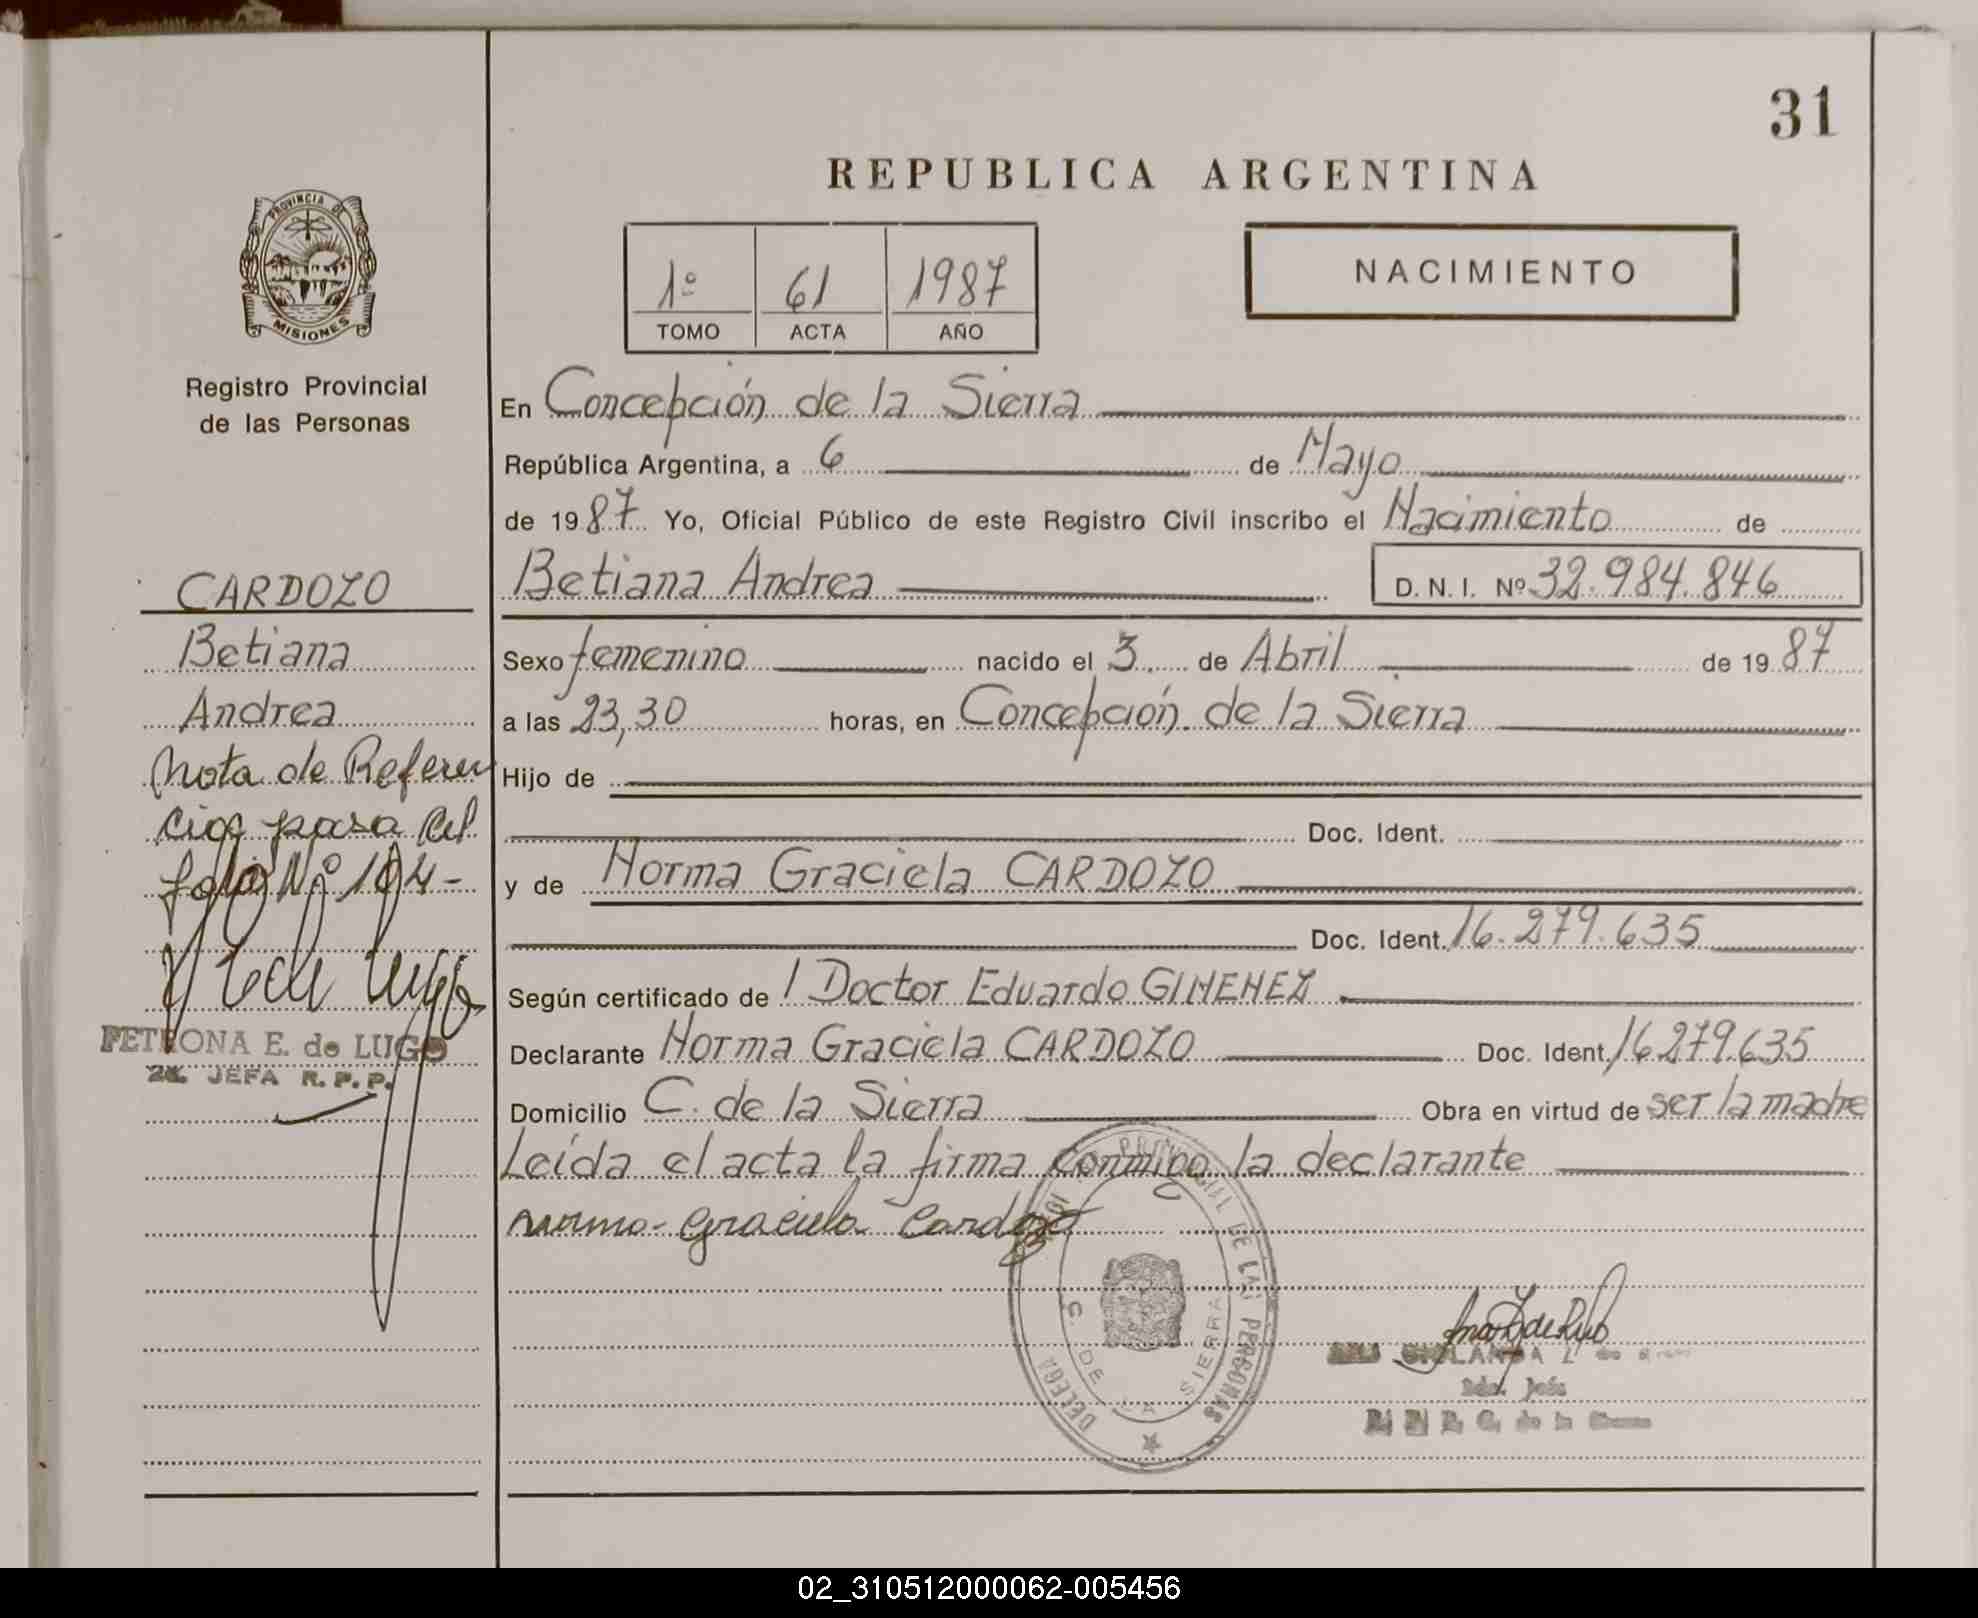 31
REPUBLICA ARGENTINA
PROVINCIA DE
MISIONES
Registro Provincial
de las Personas
1º 61 1987
TOMO ACTA AÑO
NACIMIENTO
En Concepción de la Sierra
República Argentina, a 6 de Mayo
de 1987 Yo, Oficial Público de este Registro Civil inscribo el Nacimiento de
Betiana Andrea D. N. I. Nº 32.984.846
Sexo femenino nacido el 3 de Abril de 1987
a las 23,30 horas, en Concepción de la Sierra
Hijo de
Doc. Ident.
y de Norma Graciela CARDOZO
Doc. Ident. 16.279.635
Según certificado de l Doctor Eduardo GIMENEZ
Declarante Norma Graciela CARDOZO Doc. Ident. 16.279.635
Domicilio C. de la Sierra Obra en virtud de ser la madre
Leída el acta la firma conmigo la declarante
Norma Graciela Cardozo
CARDOZO
Betiana
Andrea
Nota de Referen
cia pasa al
folio Nº 104-
PETRONA E. de LUGO
JEFA R. P. P.
PROVINCIAL DE LAS PERSONAS
DELEGA
C. DE LA SIERRA
de la
02_310512000062-005456